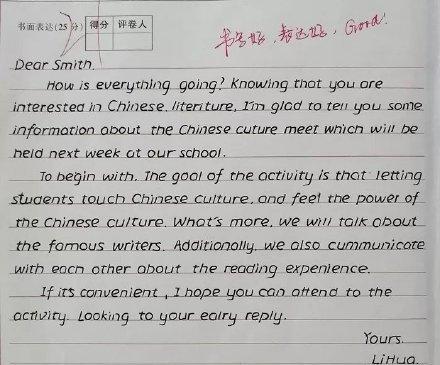 书面表达(25分) 得分 评卷人
书写好,表达好,Good!
Dear Smith.
How is everything going? Knowing that you are
interested in Chinese. literiture, I'm glad to tell you some
information about the Chinese cuture meet which will be
held next week at our school.
To begin with. The goal of the activity is that letting
students touch Chinese culture, and feel the power of
the Chinese culture. What's more, we will talk about
the famous writers. Additionally, we also cummunicate
with each other about the reading expenience.
If it's convenient, I hope you can attend to the
activity. Looking to your ealry reply.
Yours.
LiHua.